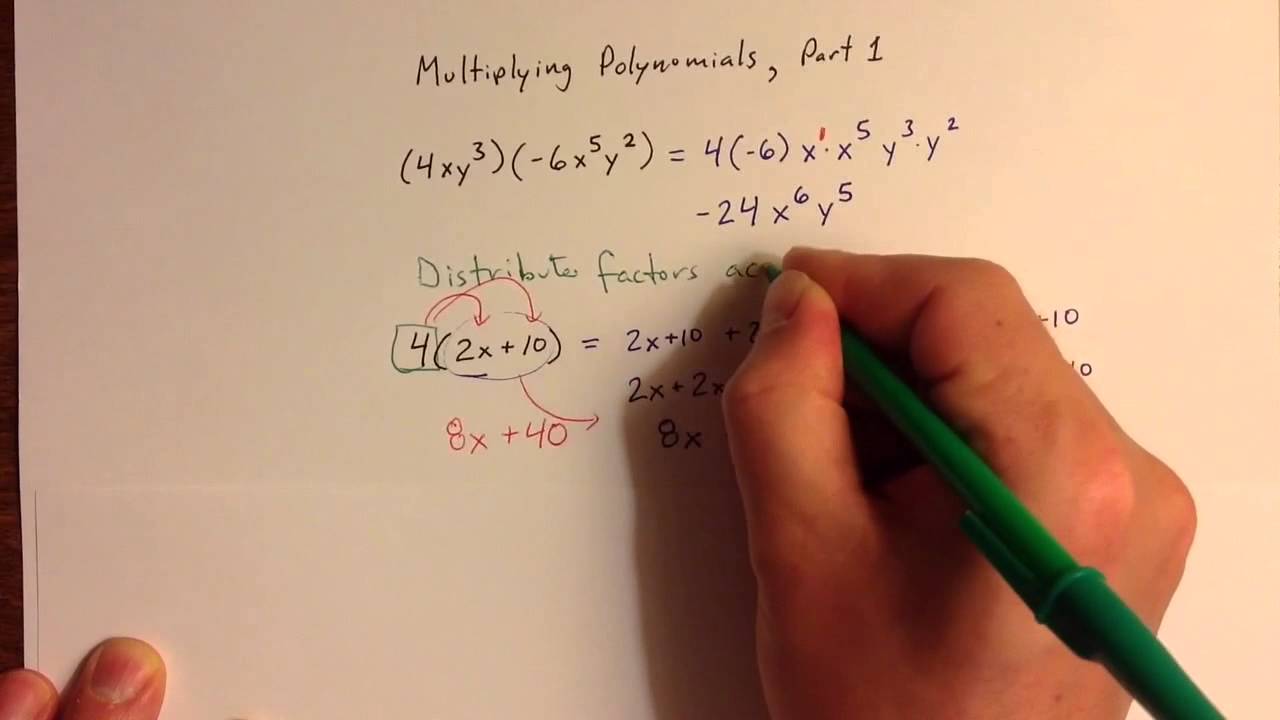 Multiplying Polynomials, Part 1
(4xy³)(-6x⁵y²) = 4(-6) x¹·x⁵ y³·y²
-24 x⁶ y⁵
Distribute factors
4(2x+10) = 2x+10 + +10
2x+2x 10
8x+40 8x